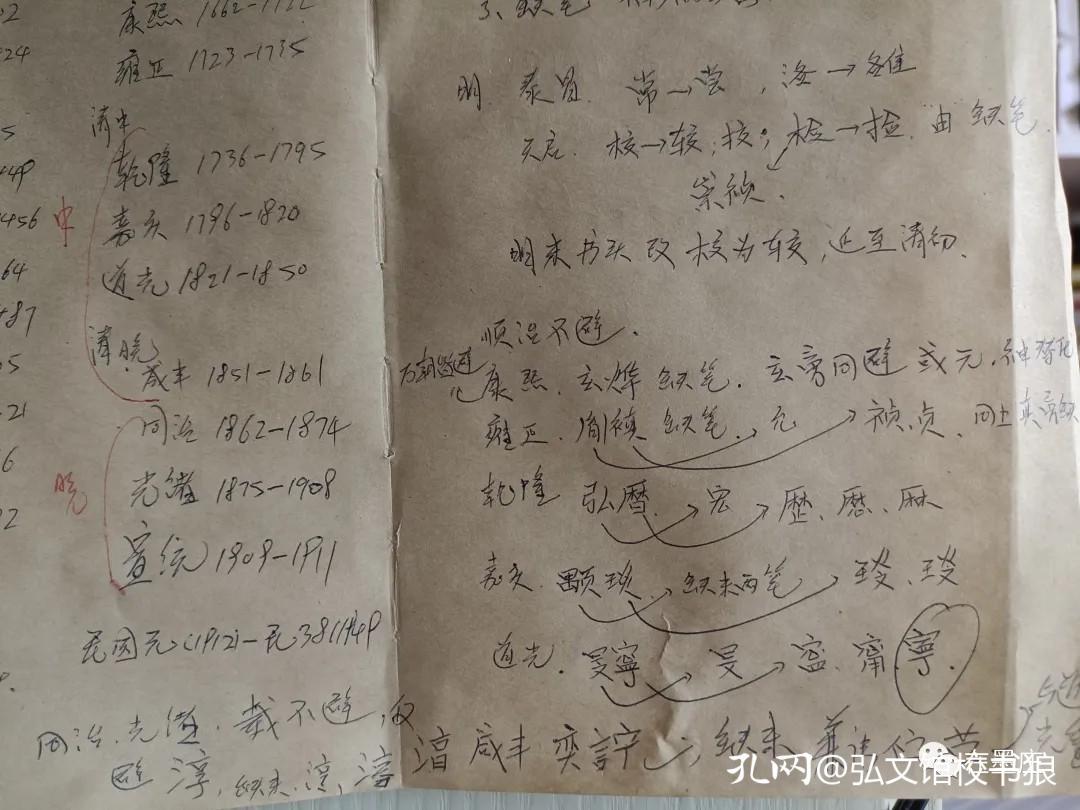 02
康熙 1662-1722
24
雍正 1723-1735
5
清中
乾隆 1736-1795
449
中
嘉庆 1796-1820
1456
道光 1821-1850
64
487
清晚
咸丰 1851-1861
5
21
同治 1862-1874
6
晚
光绪 1875-1908
22
宣统 1909-1911
民国元(1912)-民38(1949
同治.光绪.载不避,仅
避 淳,缺末.淳,湻
3、缺笔
明.泰昌. 常→尝,洛→雒
天启. 校→较;挍;检→捡.由 缺笔.
崇祯.
明末书头改校为较,延至清初.
顺治不避.
康熙. 玄烨 缺笔. 玄旁同避 或元,
雍正.胤禛 缺笔. 允 祯.贞. 同上真旁缺
乾隆 弘曆 宏 歴、厯、厤
嘉庆.颙琰 缺末两笔
道光.旻寧 旻 寍.甯 寕.
湻 咸丰 奕詝 缺末
孔网@弘文馆校书狼
在墨